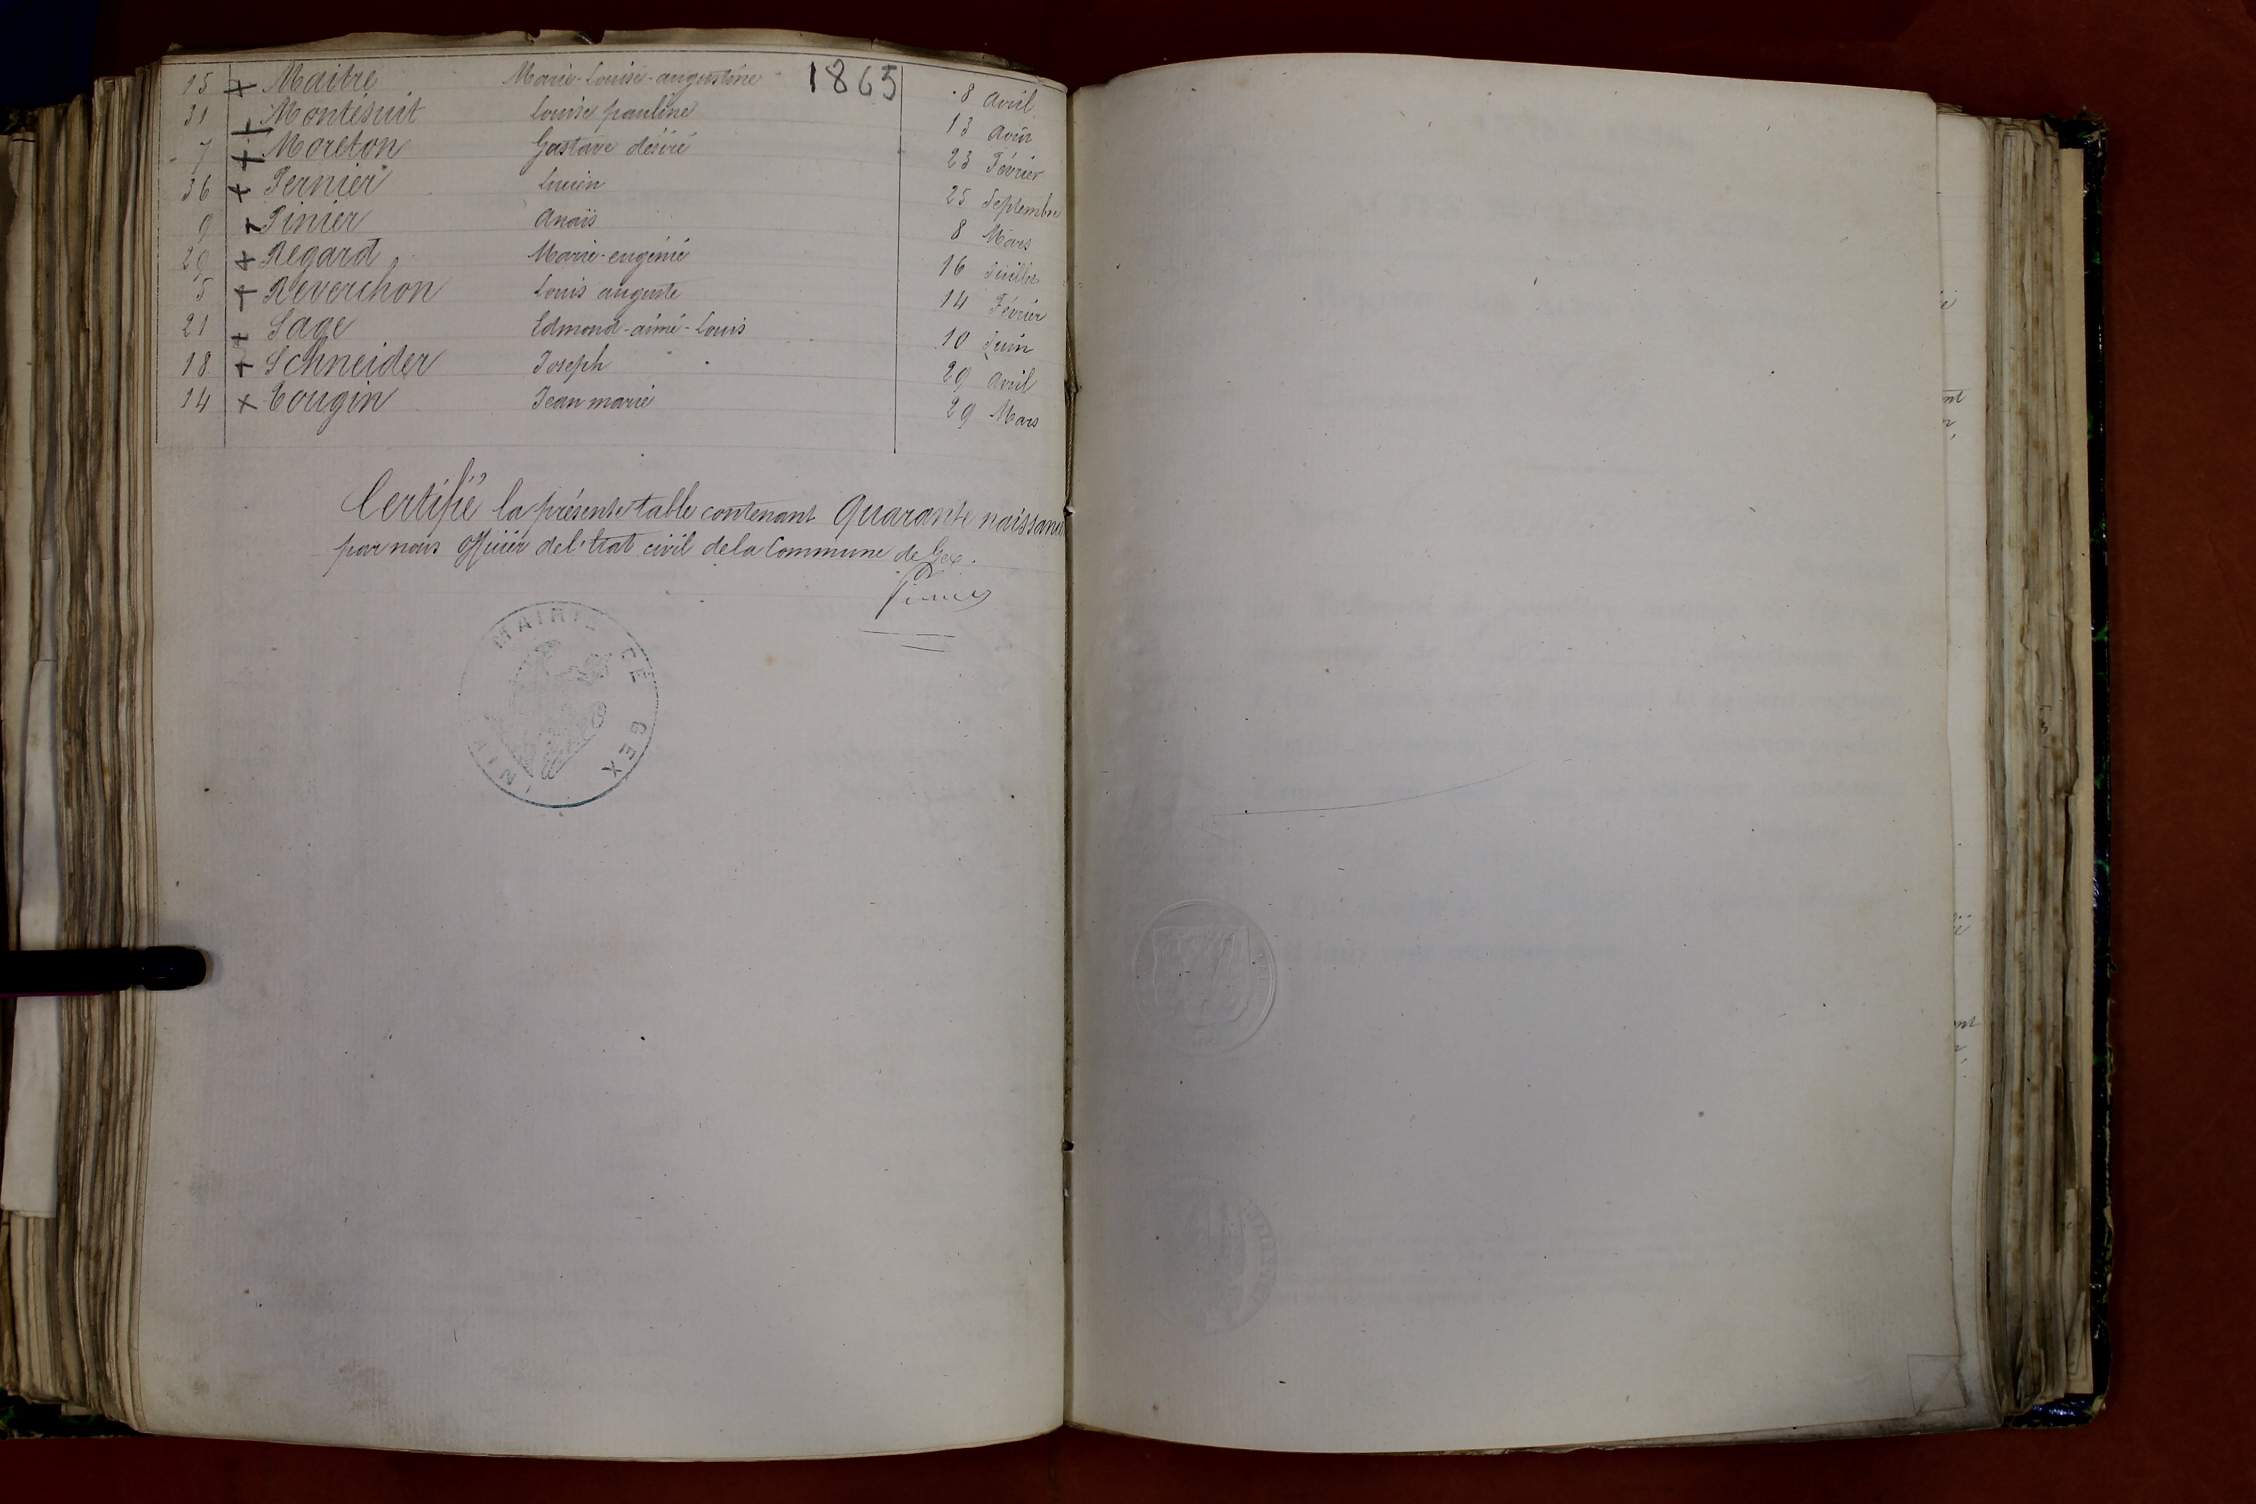 1865
15 + Maitre Marie-Louise-augustine 8 avril
31 + Montésuit Louise pauline 13 Août
7 + Moreton Gustave désiré 23 Février
36 + Pernier Lucien 25 Septembre
9 + Pinier Anaïs 8 Mars
29 + Regard Marie-eugénie 16 Juillet
5 + Reverchon Louis auguste 14 Février
21 + Sage Edmond-aimé-Louis 10 Juin
18 + Schneider Joseph 29 avril
14 + Tougin Jean marie 29 Mars
Certifié la présente table contenant Quarante naissances
par nous Officier de l'Etat civil de la Commune de Gex.
MAIRIE DE GEX
AIN